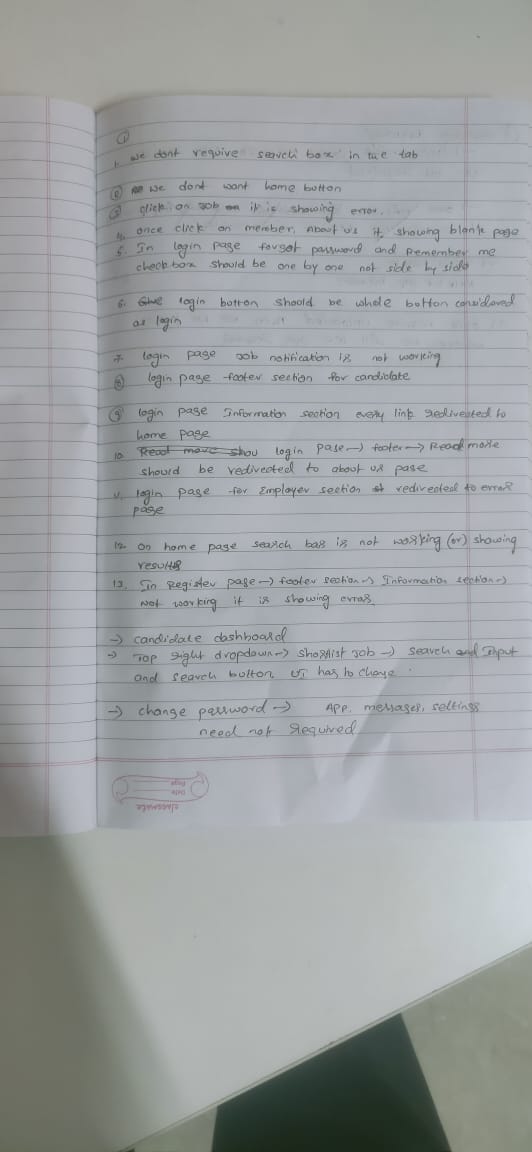 ①
1. We dont require search box in the tab
② we dont want home botton
③ click on Job it is showing error.
4. once click on member, About us it showing blank page
5. In login page forgot password and Remember me
check box should be one by one not side by side
6. login botton should be whole botton considered
as login
7. login page Job notification is not working
⑧ login page footer section for candidate
⑨ login page Information section every link redirected to
home page
10. login page → footer → Read more
should be redirected to about us page
11. login page for Employer section redirected to error
page
12. on home page search bar is not working (or) showing
results
13. In Register page → footer section → Information section →
Not working it is showing error.
→ candidate dashboard
→ Top right dropdown → shortlist Job → search and Input
and search button UI has to change.
→ change password → App, messages, settings
need not required
classmate
Date
Page